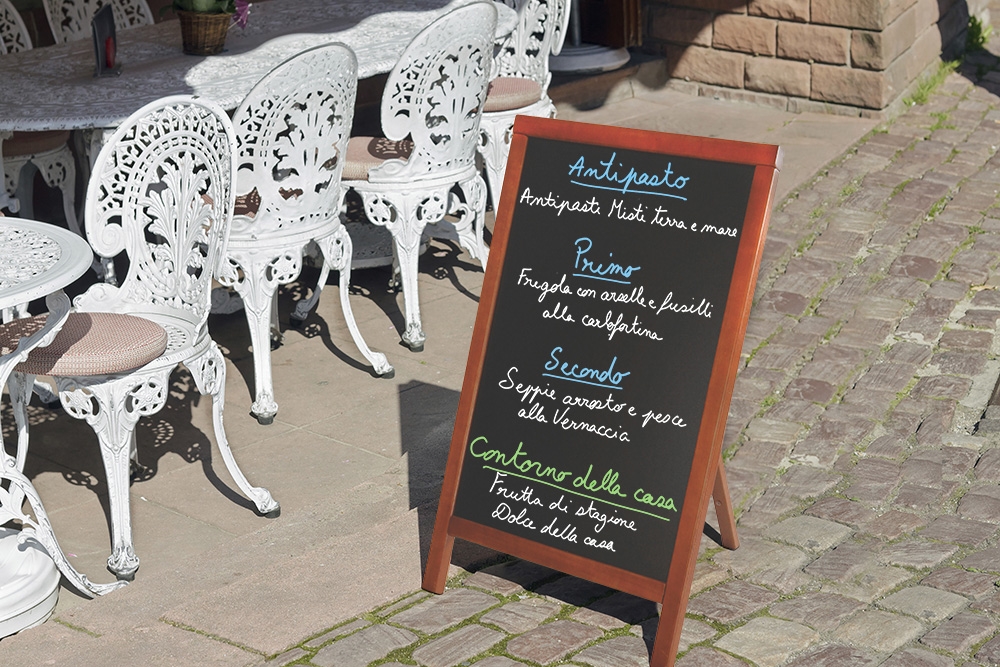 Antipasto
Antipasti Misti terra e mare
Primo
Fregola con arselle e fusilli
alla carlofortina
Secondo
Seppie arrosto e pesce
alla Vernaccia
Contorno della casa
Frutta di stagione
Dolce della casa